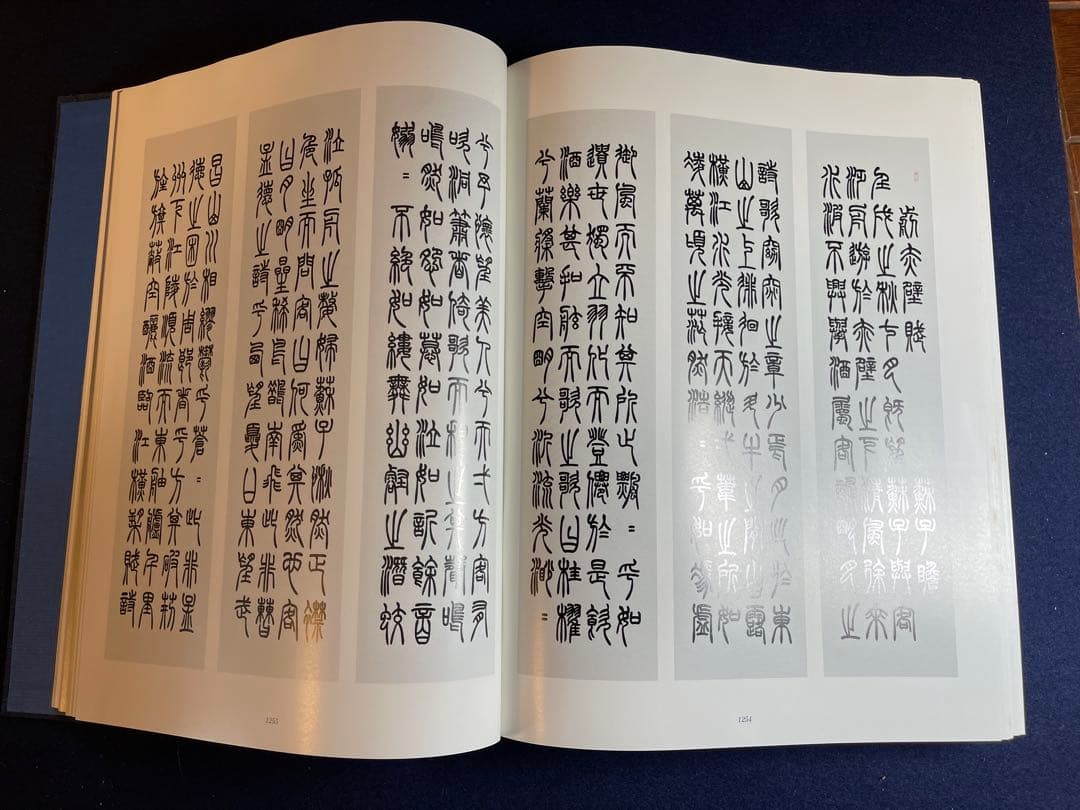 前赤壁賦 蘇子瞻
壬戌之秋七月既望蘇子與客
泛舟遊於赤壁之下清風徐來
水波不興舉酒屬客誦明月之
詩歌窈窕之章少焉月出於東
山之上徘徊於斗牛之間白露
橫江水光接天縱一葦之所如
凌萬頃之茫然浩=乎如馮虛
御風而不知其所止飄=乎如
遺世獨立羽化而登僊於是飲
酒樂甚扣舷而歌之歌曰桂櫂
兮蘭槳擊空明兮泝流光渺=
1254
兮予懷望美人兮天一方客有
吹洞簫者倚歌而和之其聲鳴
鳴然如怨如慕如泣如訴餘音
嫋=不絕如縷舞幽壑之潛蛟
泣孤舟之嫠婦蘇子愀然正襟
危坐而問客曰何為其然也客
曰月明星稀烏鵲南飛此非曹
孟德之詩乎西望夏口東望武
昌山川相繆鬱乎蒼=此非孟
德之困於周郎者乎方其破荊
州下江陵順流而東舳艫千里
旌旗蔽空釃酒臨江橫槊賦詩
1255